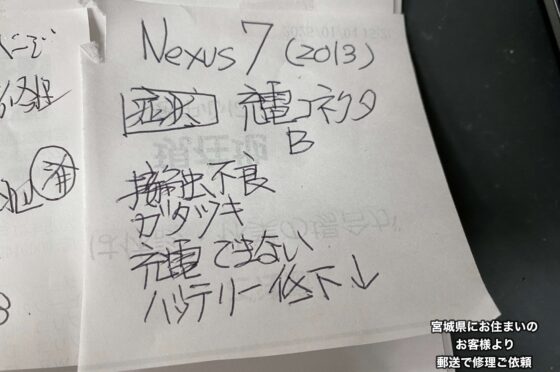 Nexus 7 (2013)
症状 充電コネクタ
B
接触不良
ガタツキ
充電できない
バッテリー低下↓
宮城県にお住まいの
お客様より
郵送で修理ご依頼